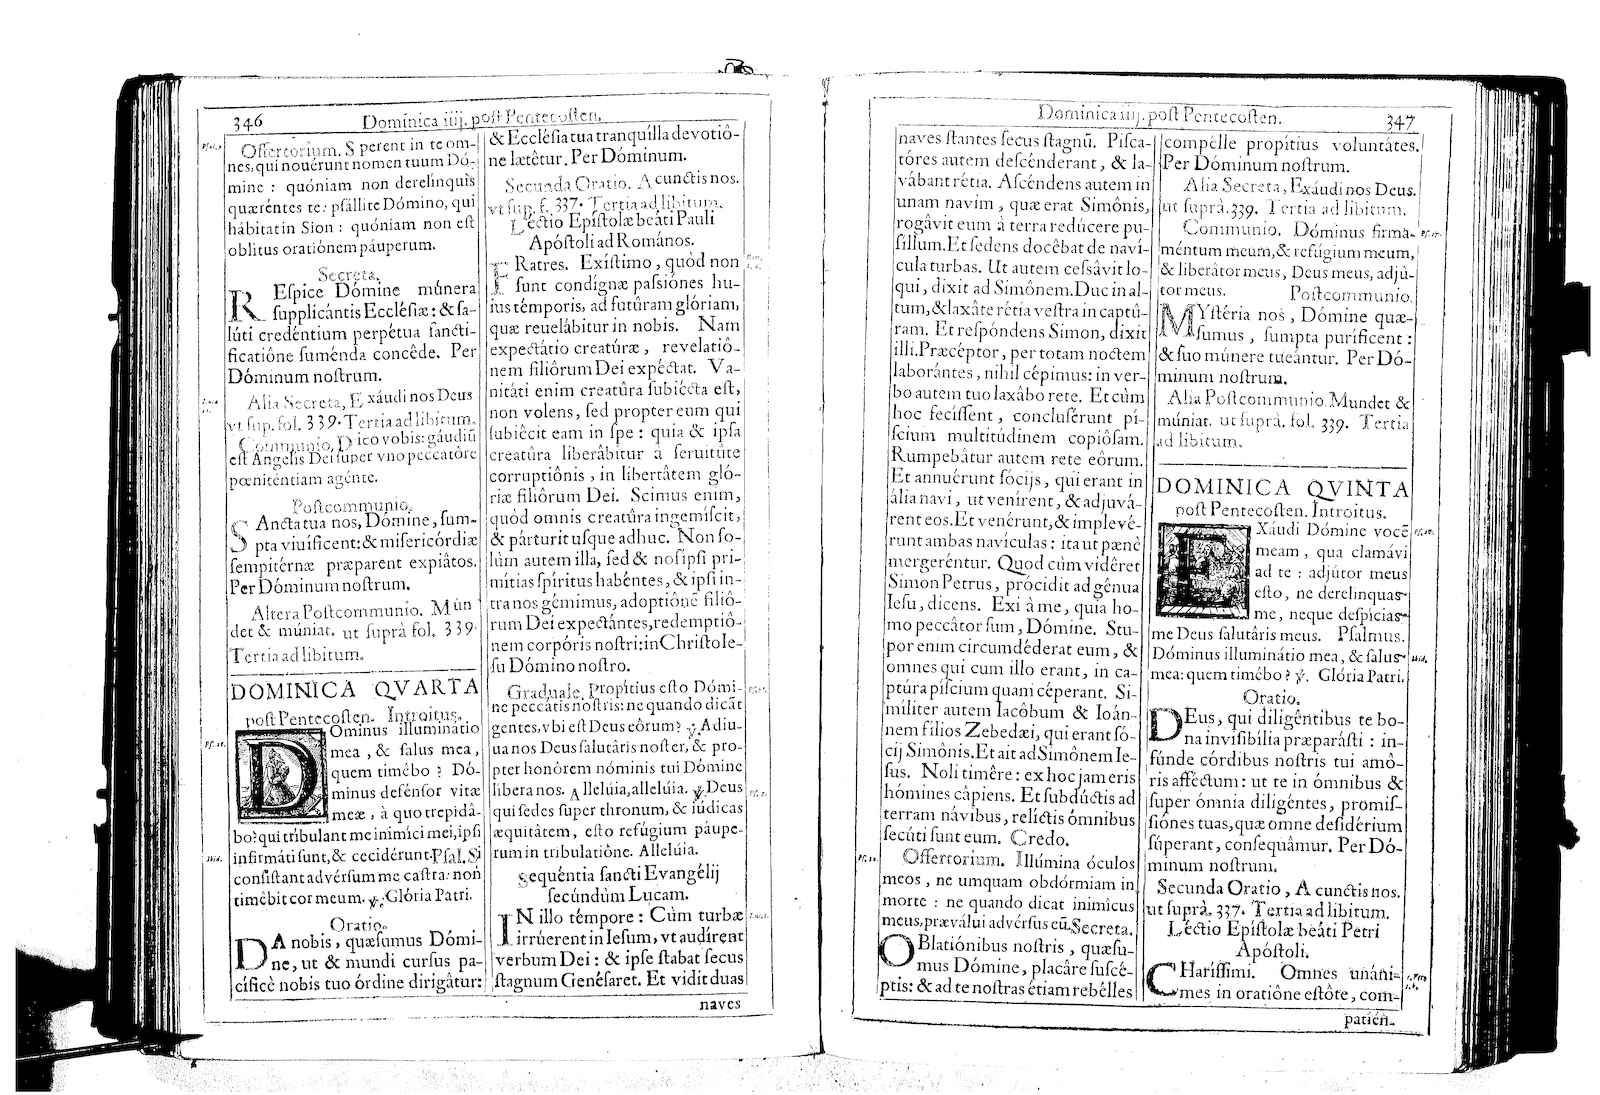 346 Dominica iiij. post Pentecosten.
Offertorium. Sperent in te om-
nes, qui novérunt nomen tuum Dó-
mine : quóniam non derelinquis
quæréntes te: psállite Dómino, qui
hábitat in Sion : quóniam non est
oblítus oratiónem páuperum.
Secreta.
REspice Dómine múnera
supplicántis Ecclésiæ: & sa-
lúti credéntium perpétua sancti-
ficatióne suménda concéde. Per
Dóminum nostrum.
Alia Secreta, Exáudi nos Deus
vt sup. fol. 339. Tertia ad libitum.
Communio. Dico vobis: gáudiũ
est Angelis Dei super vno peccatóre
pœniténtiam agénte.
Postcommunio.
SAncta tua nos, Dómine, sum-
pta viuíficent: & misericórdiæ
sempitérnæ præparent expiátos.
Per Dóminum nostrum.
Altera Postcommunio. Mun
det & múniat. ut suprà fol. 339.
Tertia ad libitum.
DOMINICA QVARTA
post Pentecosten. Introitus.
DOminus illuminátio
mea, & salus mea,
quem timébo ? Dó-
minus defénsor vitæ
meæ, à quo trepidá-
bo? qui tríbulant me inimíci mei, ipsi
infirmáti sunt, & cecidérunt. Psal. Si
consístant advérsum me castra: non
timébit cor meum. ℣. Glória Patri.
Oratio.
DA nobis, quæsumus Dómi-
ne, ut & mundi cursus pa-
cíficè nobis tuo órdine dirigátur:
& Ecclésia tua tranquílla devotió-
ne lætétur. Per Dóminum.
Secunda Oratio. A cunctis nos.
vt sup. f. 337. Tertia ad libitum.
Léctio Epístolæ beáti Pauli
Apóstoli ad Romános.
FRatres. Exístimo, quòd non
sunt condígnæ passiónes hu-
ius témporis, ad futúram glóriam,
quæ reuelábitur in nobis. Nam
expectátio creatúræ, revelatió-
nem filiórum Dei expéctat. Va-
nitáti enim creatúra subiécta est,
non volens, sed propter eum qui
subiécit eam in spe : quia & ipsa
creatúra liberábitur à seruitúte
corruptiónis, in libertátem gló-
riæ filiórum Dei. Scimus enim,
quòd omnis creatúra ingemíscit,
& párturit usque adhuc. Non so-
lùm autem illa, sed & nosípsi pri-
mítias spíritus habéntes, & ipsi in-
tra nos gémimus, adoptiónẽ filió-
rum Dei expectántes, redemptió-
nem corpóris nostri: in Christo Ie-
su Dómino nostro.
Graduale. Propítius esto Dómi-
ne peccátis nostris: ne quando dicãt
gentes, vbi est Deus eórum? ℣. Adiu-
ua nos Deus salutáris noster, & pro-
pter honórem nóminis tui Dómine
líbera nos. Allelúia, allelúia. ℣. Deus
qui sedes super thronum, & iúdicas
æquitátem, esto refúgium páupe-
rum in tribulatióne. Allelúia.
Sequéntia sancti Evangélij
secúndùm Lucam.
IN illo témpore : Cùm turbæ
irrúerent in Iesum, vt audírent
verbum Dei : & ipse stabat secus
stagnum Genésaret. Et vidit duas
naves
Dominica iiij. post Pentecosten. 347
naves stantes secus stagnũ. Pisca-
tóres autem descénderant, & la-
vábant rétia. Ascéndens autem in
unam navim, quæ erat Simónis,
rogávit eum à terra redúcere pu-
sillum. Et sedens docébat de naví-
cula turbas. Ut autem cessávit lo-
qui, dixit ad Simónem. Duc in al-
tum, & laxáte rétia vestra in captú-
ram. Et respóndens Simon, dixit
illi. Præcéptor, per totam noctem
laborántes, nihil cépimus: in ver-
bo autem tuo laxábo rete. Et cùm
hoc fecíssent, conclusérunt pí-
scium multitúdinem copiósam.
Rumpebátur autem rete eórum.
Et annuérunt sócijs, qui erant in
ália navi, ut venírent, & adjuvá-
rent eos. Et venérunt, & implevé-
runt ambas navículas : ita ut pænè
mergeréntur. Quod cùm vidéret
Simon Petrus, prócidit ad génua
Iesu, dicens. Exi à me, quia ho-
mo peccátor sum, Dómine. Stu-
por enim circumdéderat eum, &
omnes qui cum illo erant, in ca-
ptúra píscium quam céperant. Si-
míliter autem Iacóbum & Ioán-
nem fílios Zebedæi, qui erant só-
cij Simónis. Et ait ad Simónem Ie-
sus. Noli timére: ex hoc jam eris
hómines cápiens. Et subdúctis ad
terram návibus, relíctis ómnibus
secúti sunt eum. Credo.
Offertorium. Illúmina óculos
meos, ne umquam obdórmiam in
morte : ne quando dicat inimícus
meus, præválui advérsus eũ. Secreta.
OBlatiónibus nostris, quæsu-
mus Dómine, placáre suscé-
ptis: & ad te nostras étiam rebélles
compélle propítius voluntátes.
Per Dóminum nostrum.
Alia Secreta, Exáudi nos Deus.
ut suprà. 339. Tertia ad libitum.
Communio. Dóminus firma-
méntum meum, & refúgium meum,
& liberátor meus, Deus meus, adjú-
tor meus. Postcommunio.
MYstéria nos, Dómine quæ-
sumus, sumpta puríficent :
& suo múnere tueántur. Per Dó-
minum nostrum.
Alia Postcommunio. Mundet &
múniat. ut suprà. fol. 339. Tertia
ad libitum.
DOMINICA QVINTA
post Pentecosten. Introitus.
EXáudi Dómine vocẽ
meam, qua clamávi
ad te : adjútor meus
esto, ne derelinquas
me, neque despícias
me Deus salutáris meus. Psalmus.
Dóminus illuminátio mea, & salus
mea: quem timébo? ℣. Glória Patri.
Oratio.
DEus, qui diligéntibus te bo-
na invisibília præparásti : in-
fúnde córdibus nostris tui amó-
ris afféctum: ut te in ómnibus &
super ómnia diligéntes, promis-
siónes tuas, quæ omne desidérium
súperant, consequámur. Per Dó-
minum nostrum.
Secunda Oratio, A cunctis nos.
ut suprà. 337. Tertia ad libitum.
Léctio Epístolæ beáti Petri
Apóstoli.
CHaríssimi. Omnes unáni-
mes in oratióne estóte, com-
patién-